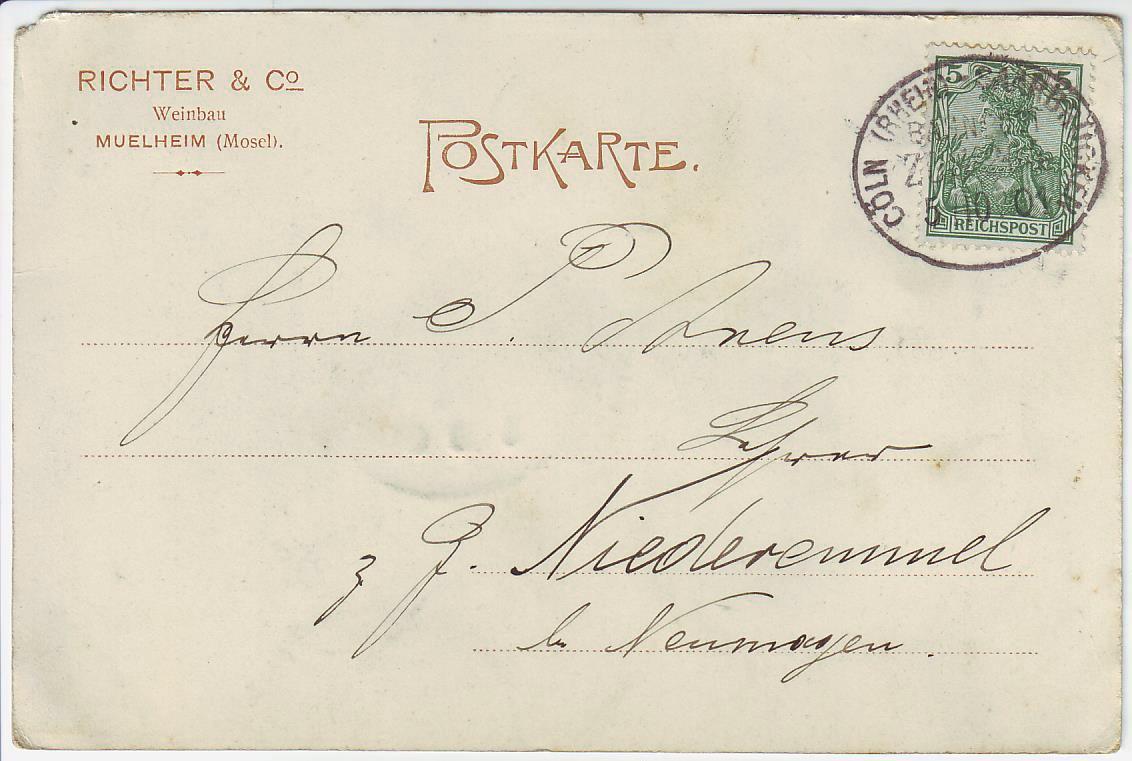 RICHTER & Co
Weinbau
MUELHEIM (Mosel).
POSTKARTE.
5 5
REICHSPOST
CÖLN (RHEIN) SAARBRÜCKEN
5 10 01
Herrn P.
Lehrer
z Z. Niederemmel
b. Neumagen.